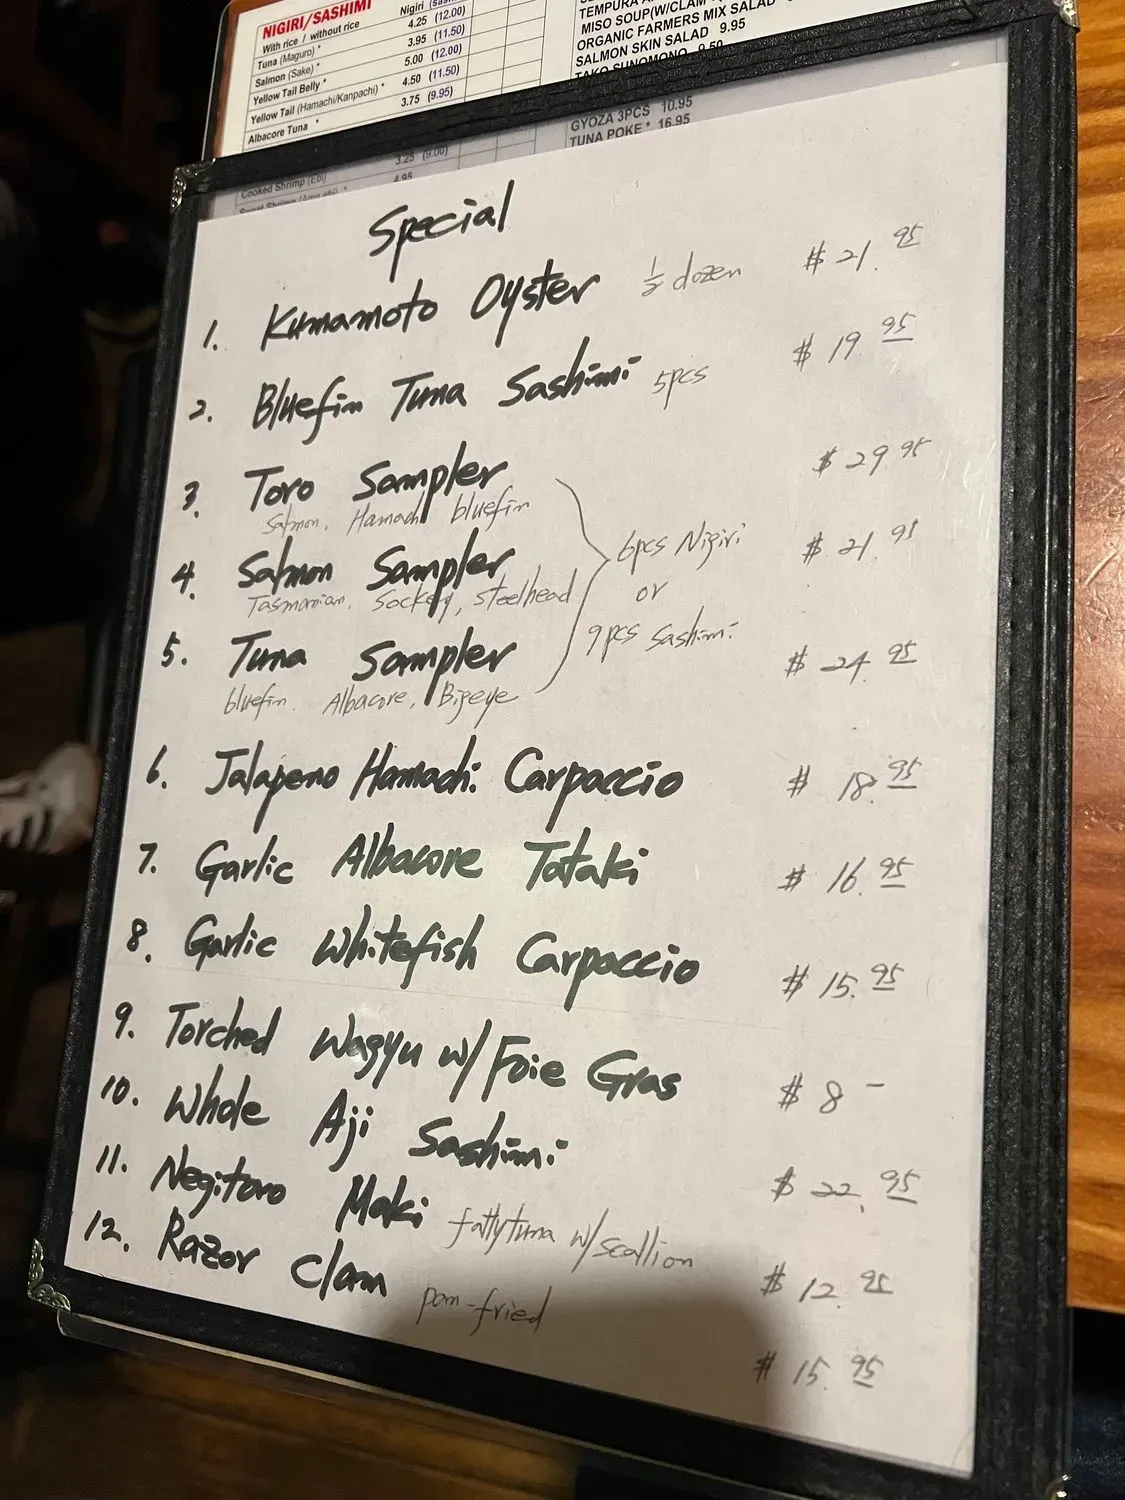 NIGIRI/SASHIMI Nigiri
With rice / without rice 4.25 (12.00)
Tuna (Maguro) * 3.95 (11.50)
Salmon (Sake) * 5.00 (12.00)
Yellow Tail Belly * 4.50 (11.50)
Yellow Tail (Hamachi/Kanpachi) * 3.75 (9.95)
Albacore Tuna *
3.25 (9.00)
Cooked Shrimp (Ebi) 4.95
MISO SOUP(W/CLAM
ORGANIC FARMERS MIX SALAD
SALMON SKIN SALAD 9.95
TAKO SUNOMONO 9.50
GYOZA 3PCS 10.95
TUNA POKE * 16.95
Special
1. Kumamoto Oyster ½ dozen $21.95
2. Bluefin Tuna Sashimi 5pcs $19.95
3. Toro Sampler $29.95
Salmon, Hamachi bluefin
4. Salmon Sampler $21.95
Tasmanian, Sockey, steelhead
6pcs Nigiri
or
9pcs Sashimi
5. Tuna Sampler $24.95
bluefin. Albacore, Bigeye
6. Jalapeno Hamachi Carpaccio $18.95
7. Garlic Albacore Tataki $16.95
8. Garlic Whitefish Carpaccio $15.95
9. Torched Wagyu w/ Foie Gras $8-
10. Whole Aji Sashimi $22.95
11. Negitoro Maki fattytuna w/scallion $12.95
12. Razor Clam pan-fried $15.95